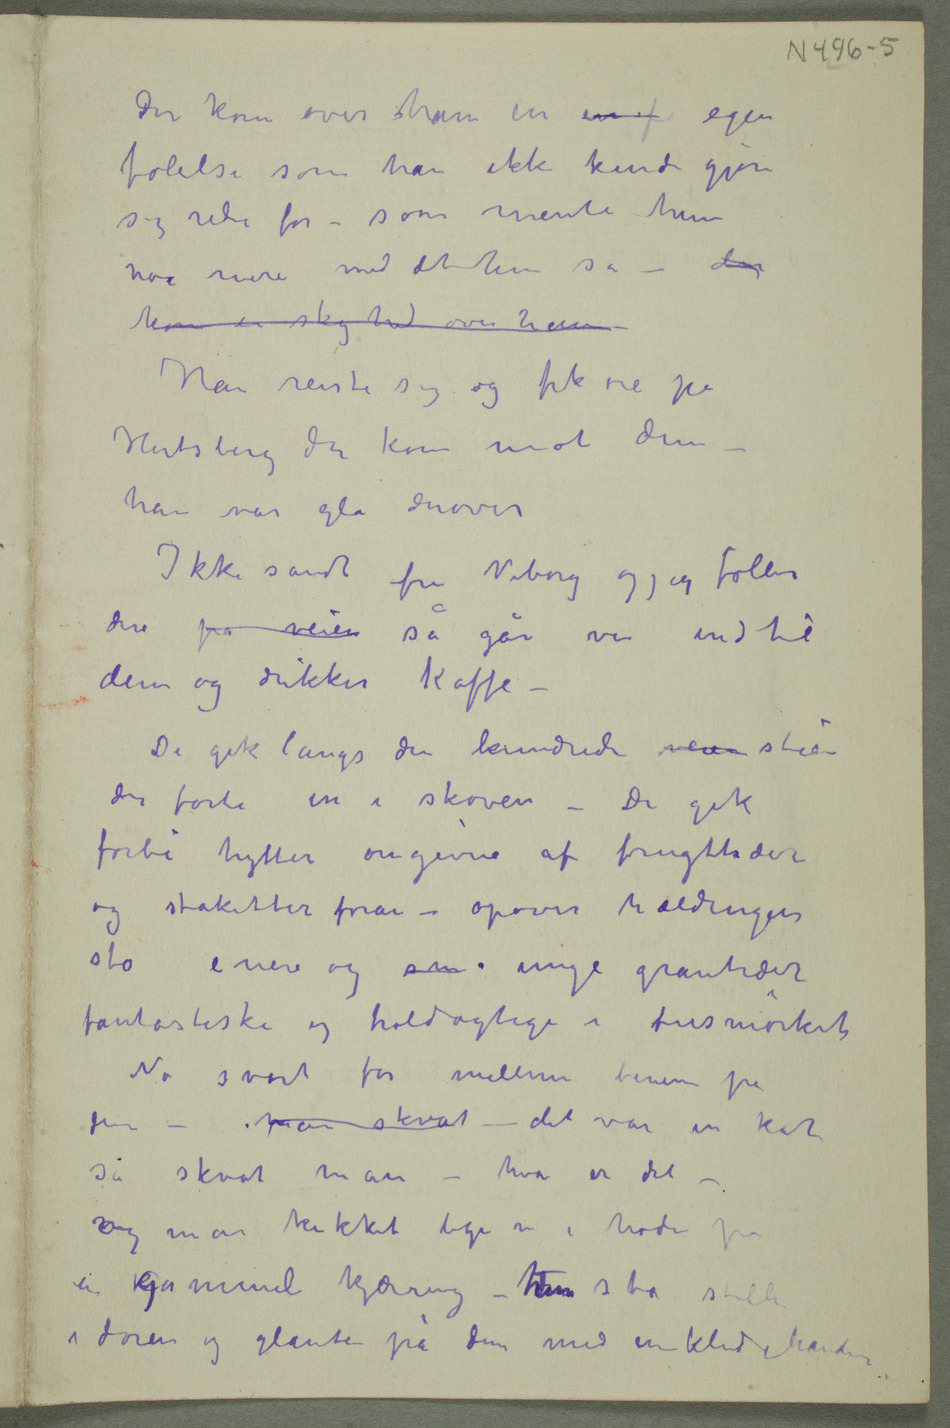 N496-5
Der kom over ham en en f egen
følelse som han ikke kunde gjøre
sig rede for – som mente hun
noe mere med det hun sa – der
kom en skyhed over ham –
Han reiste sig og fik øie på
Hertsberg der kom mot dem –
han var gla derover
Ikke sandt fru Neborg og jeg føller
dere på veien så går vi ind til
dem og drikker kaffe –
De gik langs den lerndrede veien stien
der førte in i skoven – De gik
forbi hytter omgivne af frugttræer
og staketter foran – opover hældingen
sto enere og sm unge grantrær
fantastiske og troldagtige i tusmørket
No svart for mellem benene på
en – man skvat – det var en kat
så skvat man – hva er det –
og man kikket lige in i hode på
en gammel kjærring – hun sto stille
i døren og glante på dem med en klud i hånden